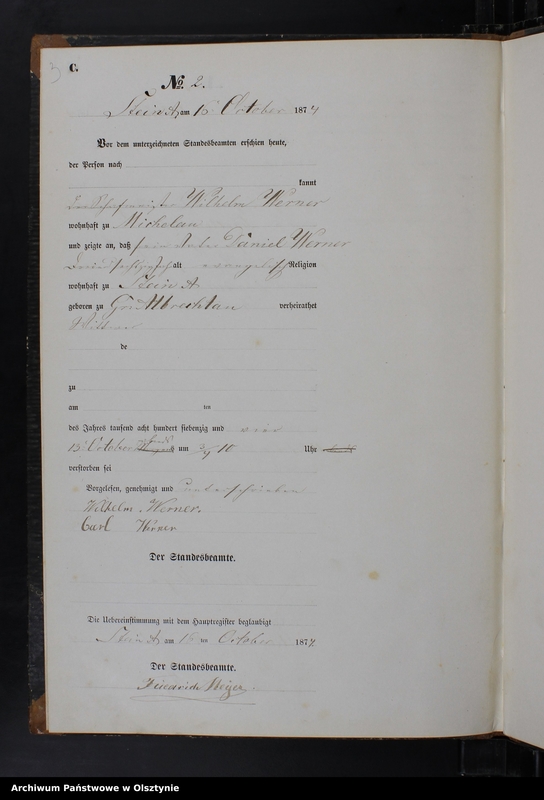 C.
No. 2.
Stein A, am 15 October 1874
Vor dem unterzeichneten Standesbeamten erschien heute,
der Person nach
kannt
Wilhelm Werner
wohnhaft zu Michelau
und zeigte an, daß sein Vater Daniel Werner
alt evangelisch Religion
wohnhaft zu Stein A
geboren zu Gr. Albrechtau verheirathet
de
zu
am ten
des Jahres tausend acht hundert siebenzig und vier
15 October um 3/4 10 Uhr
verstorben sei
Vorgelesen, genehmigt und unterschrieben
Wilhelm Werner.
Carl Werner
Der Standesbeamte.
Die Uebereinstimmung mit dem Hauptregister beglaubigt
Stein A am 15 ten October 1874
Der Standesbeamte.